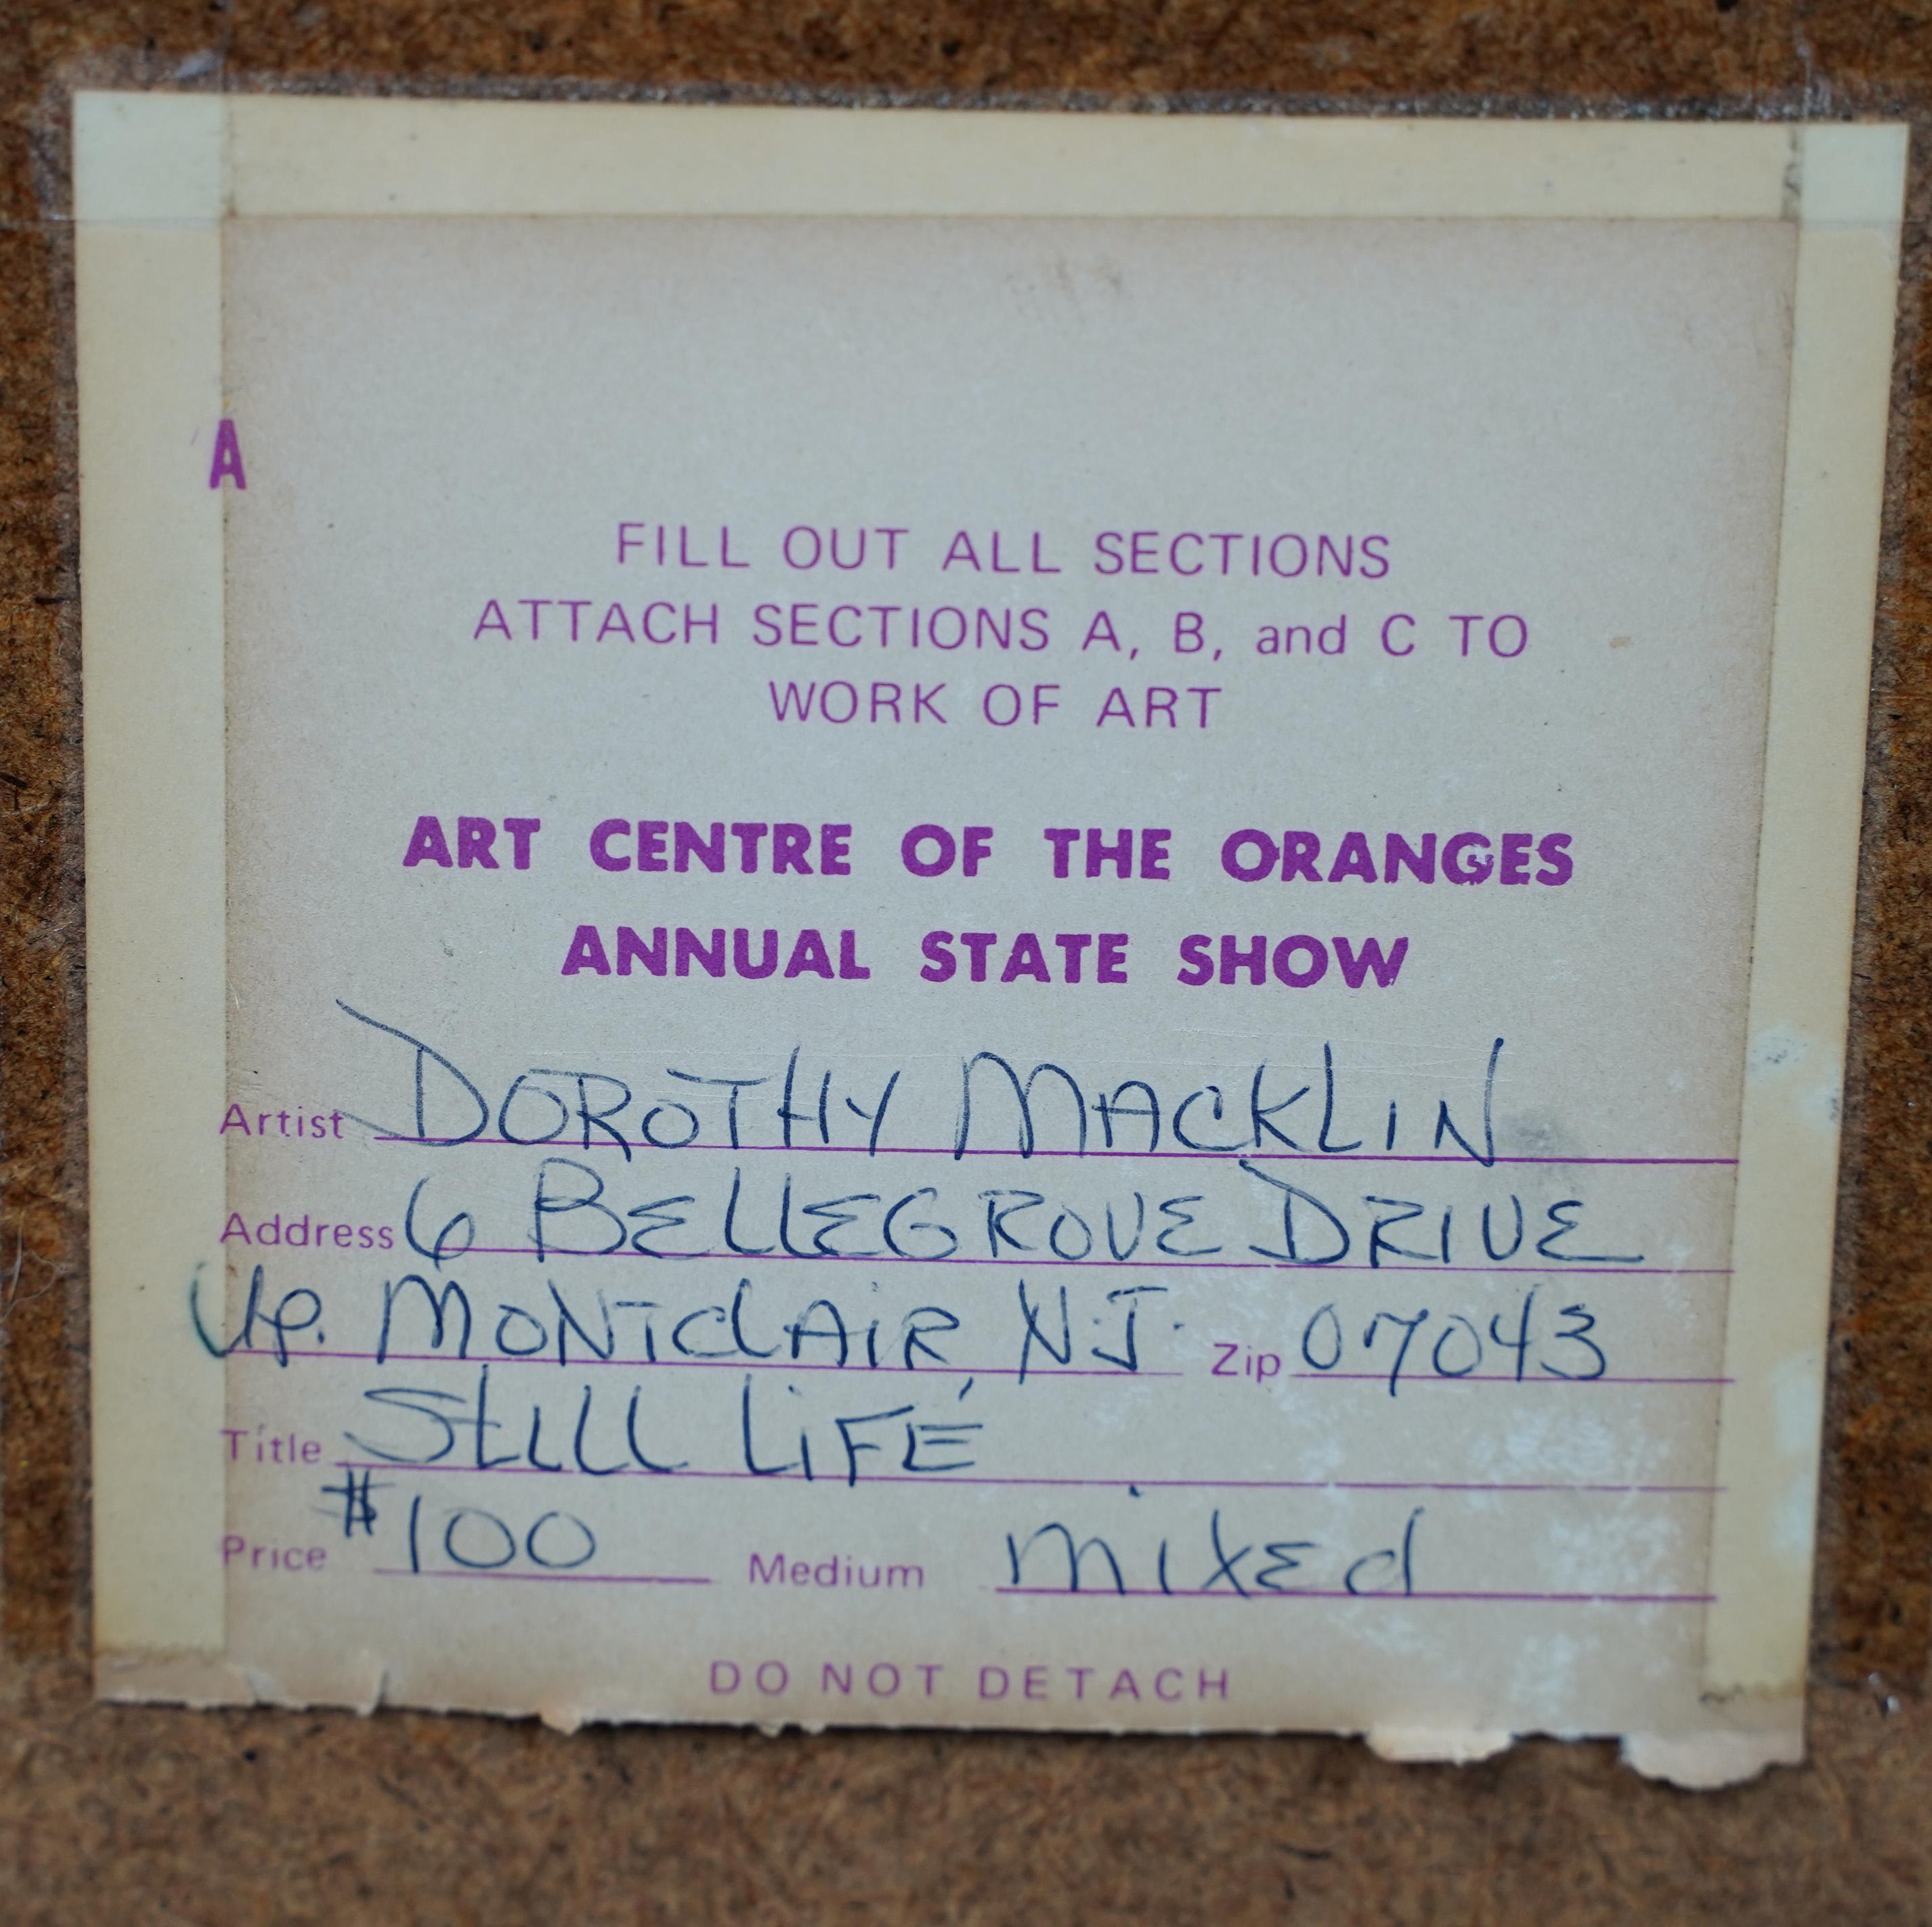 A
FILL OUT ALL SECTIONS
ATTACH SECTIONS A, B, and C TO
WORK OF ART
ART CENTRE OF THE ORANGES
ANNUAL STATE SHOW
Artist DOROTHY MACKLIN
Address 6 BELLEGROVE DRIVE
Up. MONTClAiR N.J. Zip 07043
Title StILL LiFÉ
Price $100 Medium mixEd
DO NOT DETACH